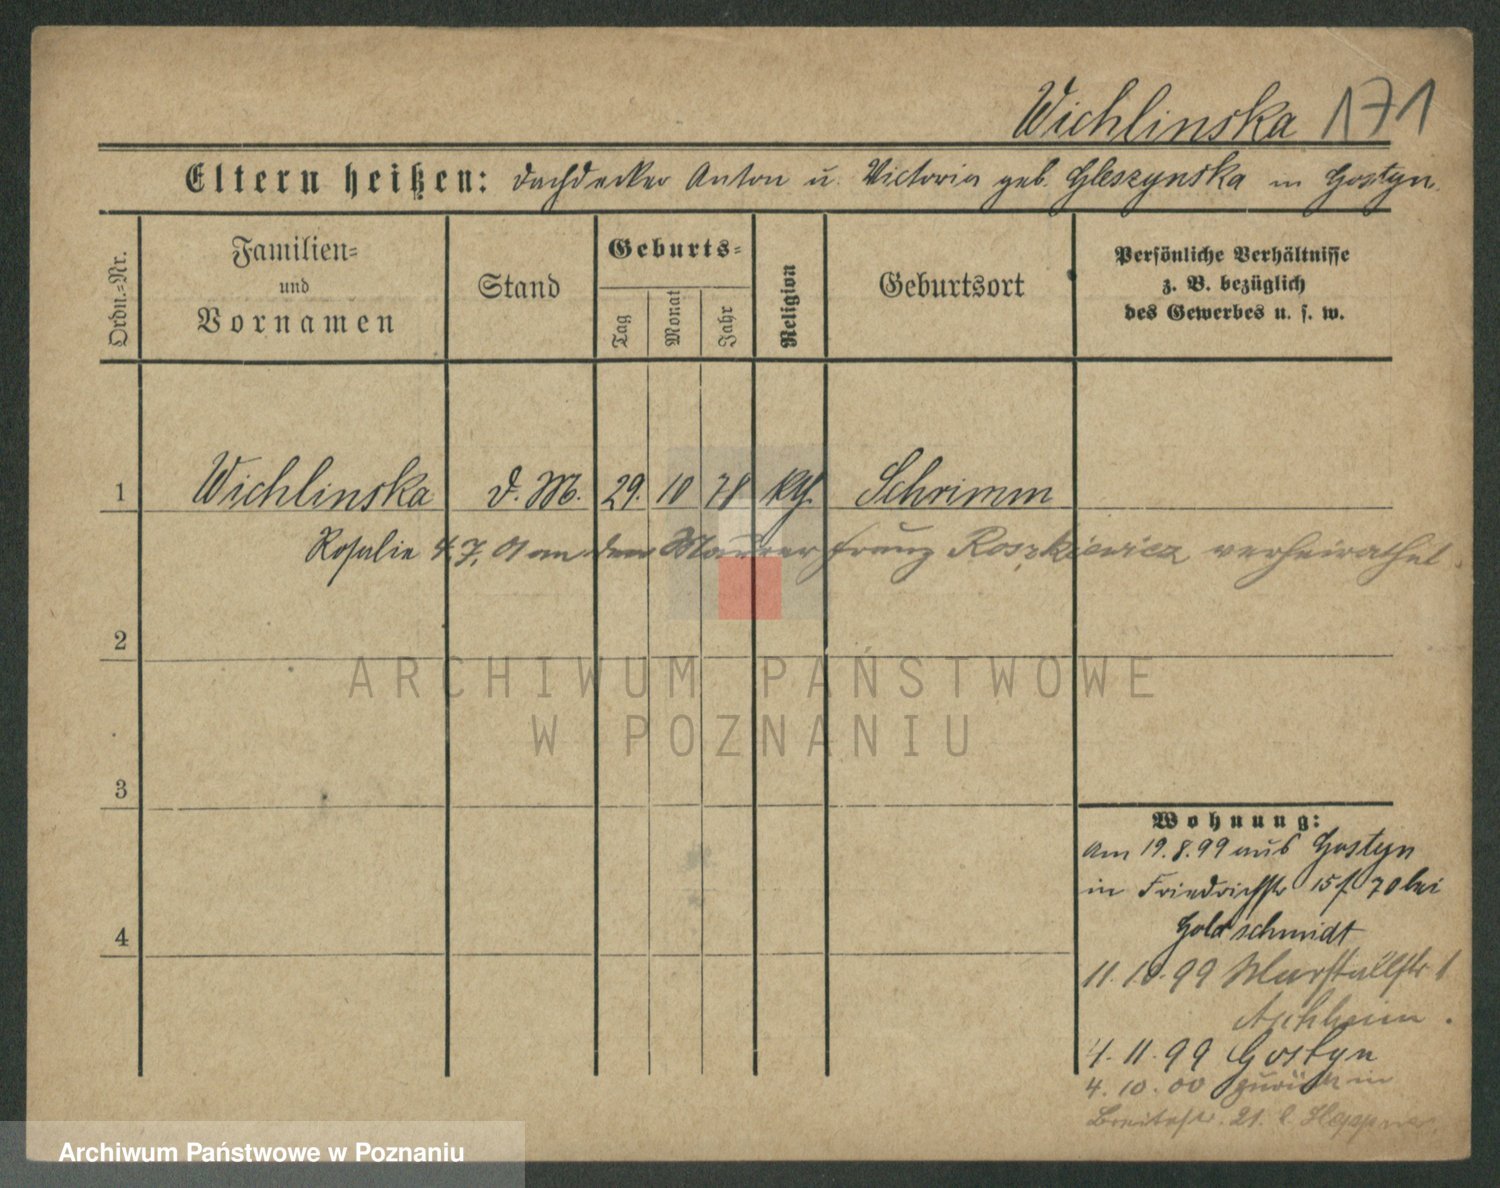 Wichlinska 171
Eltern heißen: Dachdecker Anton u. Victoria geb. Gleszynska in Gostyn.
Ordn.-Nr.
Familien-
und
Vornamen
Stand
Geburts-
Tag
Monat
Jahr
Religion
Geburtsort
Persönliche Verhältnisse
z. B. bezüglich
des Gewerbes u. s. w.
1 Wichlinska d. M. 29. 10 78 kth. Schrimm
Rosalie 4.7.01 an den Maurer Franz Roszkiewicz verheirathet.
2
3
4
Wohnung:
Am 19.8.99 aus Gostyn
in Friedrichstr 15 f. 70 bei
Goldschmidt
11.10.99 Marstallstr 1
Aschheim.
4.11.99 Gostyn
4.10.00 zurück in
Breitestr. 21. b. Heppner.
ARCHIWUM PAŃSTWOWE
W POZNANIU
Archiwum Państwowe w Poznaniu